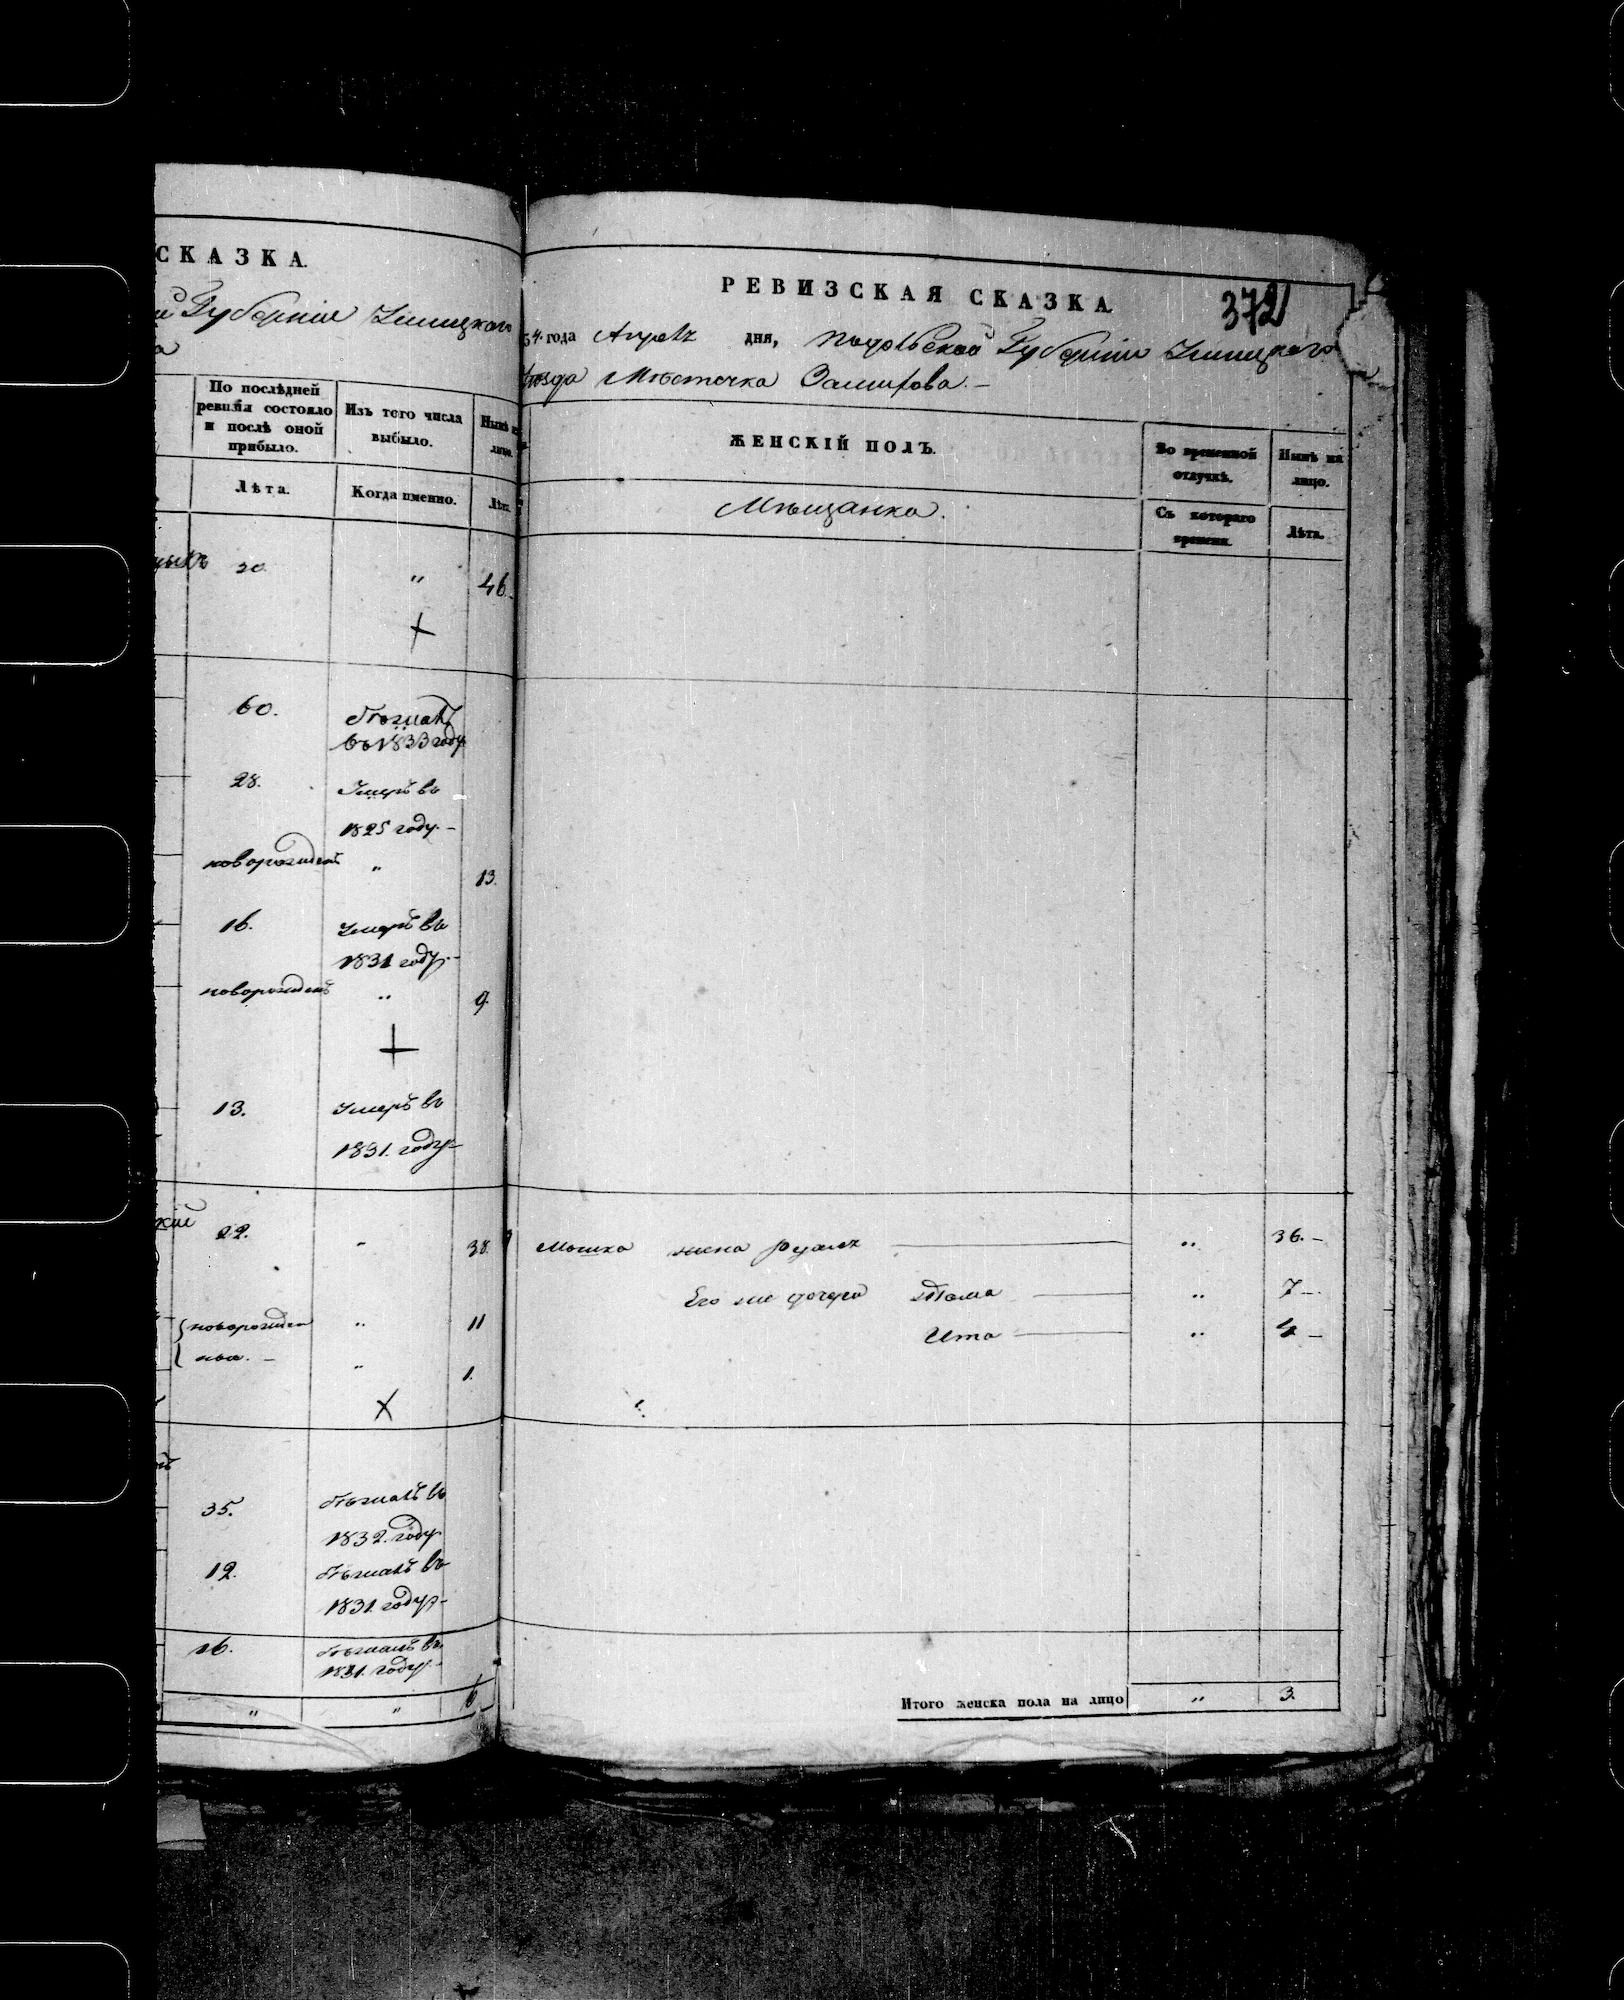 СКАЗКА.
Губерніи Ушицкаго
По послѣдней
ревизіи состояло
и послѣ оной
прибыло.
Изъ того числа
выбыло.
Нынѣ на
лицо.
Лѣта.
Когда именно.
Лѣта.
20
"
46.
60.
въ 1833 году
28.
Умеръ въ
1825 году. —
новорожденъ
"
13.
16.
Умеръ въ
1831 году. —
новорожденъ
"
9.
13.
Умеръ въ
1831. году —
22.
"
38.
новорожден
"
11
ные. —
"
1.
35.
въ
1832. году
12.
въ
1831 году —
въ
1831. году. —
"
"
6
РЕВИЗСКАЯ СКАЗКА.
372
34. года Апрѣля дня, Подольской Губерніи Ушицкаго
уѣзда Мѣстечка —
ЖЕНСКІЙ ПОЛЪ.
Во временной
отлучкѣ.
Нынѣ на
лицо.
Мѣщанка.
Съ котораго
времени.
Лѣта.
Мошка жена " 36. —
Его же дочери " 7 —
Ита " 4 —
Итого женска пола на лицо " 3.